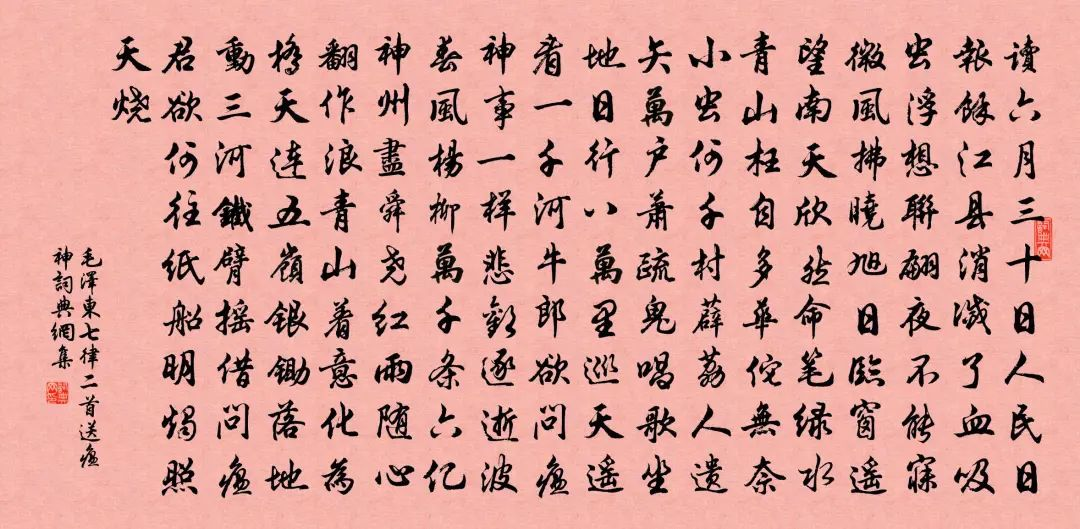 讀六月三十日人民日
報餘江县消滅了血吸
虫浮想聯翩夜不能寐
微風拂曉旭日臨窗遥
望南天欣然命笔绿水
青山枉自多華佗無奈
小虫何千村薜荔人遗
矢萬户萧疏鬼唱歌坐
地日行八萬里巡天遥
看一千河牛郎欲问瘟
神事一样悲歡逐逝波
春風楊柳萬千条六亿
神州盡舜尧红雨随心
翻作浪青山着意化為
橋天连五嶺银锄落地
動三河鐵臂摇借问瘟
君欲何往纸船明烛照
天烧
毛澤東七律二首送瘟
神詞典網集